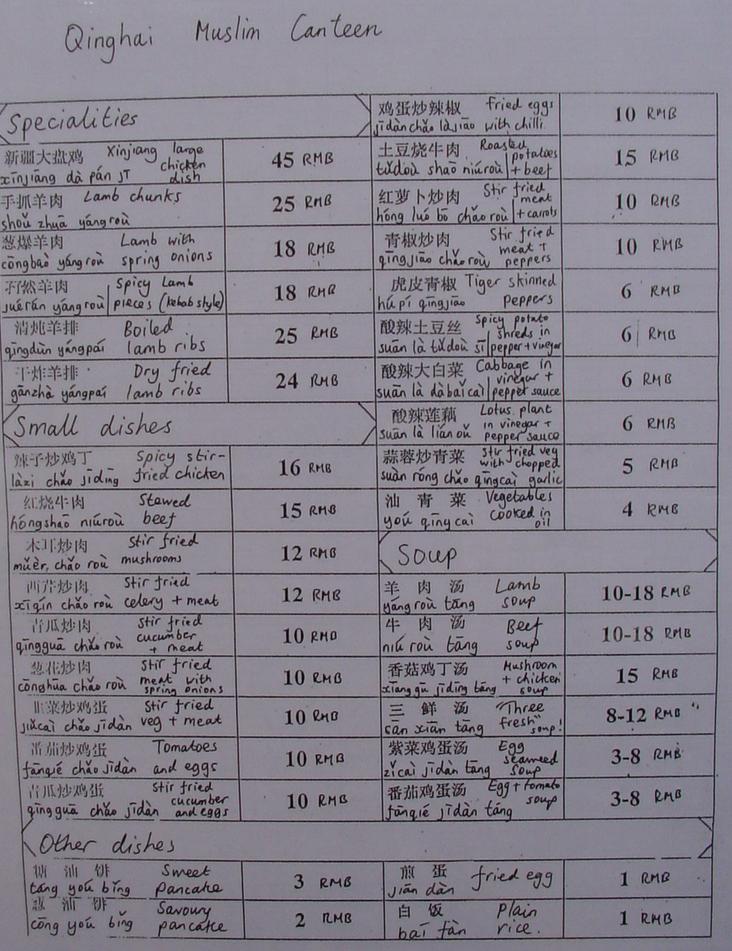 Qinghai Muslim Canteen
Specialities
新疆大盘鸡 Xinjiang large
xīnjiāng dà pán jī chicken dish
45 RMB
手抓羊肉 Lamb chunks
shoǔ zhuā yángroù
25 RMB
葱爆羊肉 Lamb with
cōngbaò yángroù spring onions
18 RMB
孜然羊肉 Spicy Lamb
juērán yángroù pieces (kebab style)
18 RMB
清炖羊排 Boiled
qīngdùn yángpaí lamb ribs
25 RMB
干炸羊排 Dry fried
gānzhà yángpaí lamb ribs
24 RMB
Small dishes
辣子炒鸡丁 Spicy stir-
làzi chǎo jīdīng fried chicken
16 RMB
红烧牛肉 Stewed
hóngshāo niúroù beef
15 RMB
木耳炒肉 Stir fried
mùěr, chǎo roù mushrooms
12 RMB
西芹炒肉 Stir fried
xīqín chǎo roù celery + meat
12 RMB
青瓜炒肉 Stir fried
qīngguā chǎo roù cucumber + meat
10 RMB
葱花炒肉 Stir fried
cōnghūa chǎo roù meat with spring onions
10 RMB
韭菜炒鸡蛋 Stir fried
jiǔcaì chǎo jīdàn veg + meat
10 RMB
番茄炒鸡蛋 Tomatoes
fānqié chǎo jīdàn and eggs
10 RMB
青瓜炒鸡蛋 Stir fried
qīngguā chǎo jīdàn cucumber and eggs
10 RMB
鸡蛋炒辣椒 fried eggs
jīdàn chǎo làjiāo with chilli
10 RMB
土豆烧牛肉 Roasted potatoes
tǔdoù shaō niúroù + beef
15 RMB
红萝卜炒肉 Stir fried meat
hóng luó bō chǎo roù + carrots
10 RMB
青椒炒肉 Stir fried
qīngjiāo chǎo roù meat + peppers
10 RMB
虎皮青椒 Tiger skinned
hǔpí qīngjiāo peppers
6 RMB
酸辣土豆丝 Spicy potato shreds in
suān là tǔdoù sī pepper + vinegar
6 RMB
酸辣大白菜 Cabbage in vinegar +
suān là dàbaí caì pepper sauce
6 RMB
酸辣莲藕 Lotus plant in vinegar +
suān là lián oǔ pepper sauce
6 RMB
蒜蓉炒青菜 Stir fried veg with chopped
suàn róng chǎo qīngcaì garlic
5 RMB
油青菜 Vegetables
yoú qīng caì cooked in oil
4 RMB
Soup
羊肉汤 Lamb
yáng roù tāng soup
10-18 RMB
牛肉汤 Beef
niú roù tāng soup
10-18 RMB
香菇鸡丁汤 Mushroom + chicken
xiānggū jīdīng tāng soup
15 RMB
三鲜汤 "Three
sān xiān tāng fresh" soup!
8-12 RMB
紫菜鸡蛋汤 Egg seaweed
zǐcaì jīdàn tāng soup
3-8 RMB
番茄鸡蛋汤 Egg + tomato soup
fānqié jīdàn tāng
3-8 RMB
Other dishes
糖油饼 Sweet
táng yoú bǐng pancake
3 RMB
煎蛋 fried egg
jiān dàn
1 RMB
葱油饼 Savoury
cōng yoú bǐng pancake
2 RMB
白饭 Plain
baí fàn rice.
1 RMB